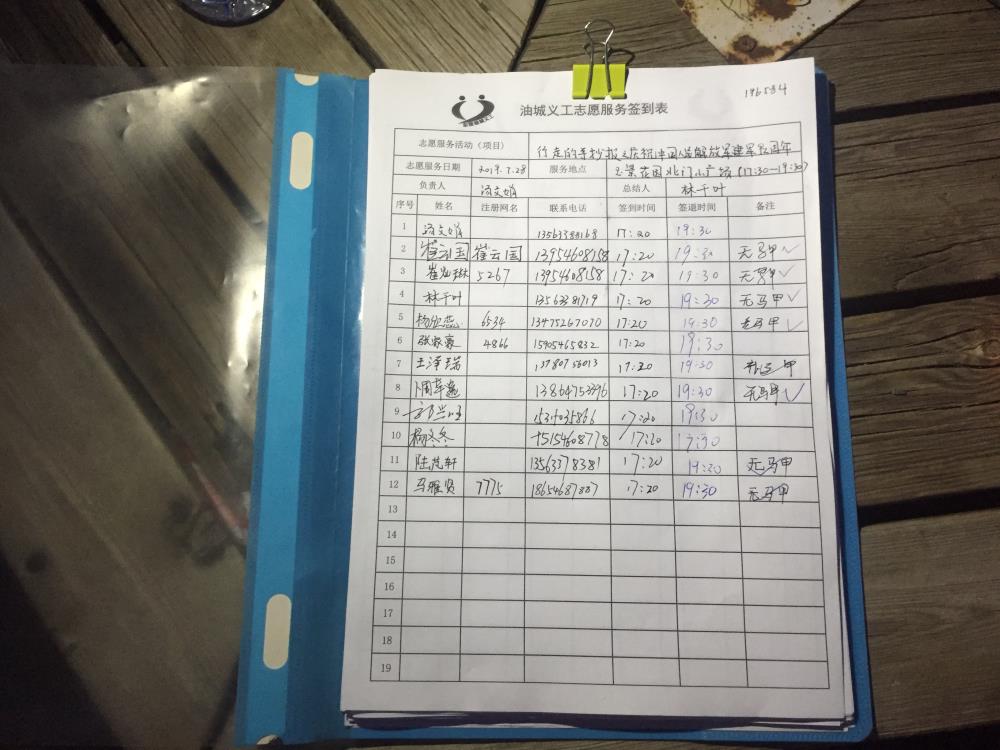 196534
油城义工志愿服务签到表
志愿服务活动（项目） 行走的手抄报之庆祝中国人民解放军建军 周年
志愿服务日期 2019.7.28 服务地点 玉景花园北门小广场（17:30—19:30）
负责人 汤文娟 总结人 林千叶
序号 姓名 注册网名 联系电话 签到时间 签退时间 备注
1 汤文娟 13563388168 17:20 19:30
2 崔云国 崔云国 13954608158 17:20 19:30 无马甲
3 5267 13954608158 17:20 19:30 无马甲
4 林千叶 13563381719 17:20 19:30 无马甲
5 6534 13475267070 17:20 19:30 无马甲
6 张家豪 4866 15905465832 17:20 19:30
7 王泽瑞 13780756013 17:20 19:30
8 周莘逸 13864753396 17:20 19:30 无马甲
9 17:20 19:30
10 杨冬冬 15154608778 17:20 19:30
11 陆范轩 13563378381 17:20 19:30 无马甲
12 马雅贤 7775 18654687887 17:20 19:30 无马甲
13
14
15
16
17
18
19